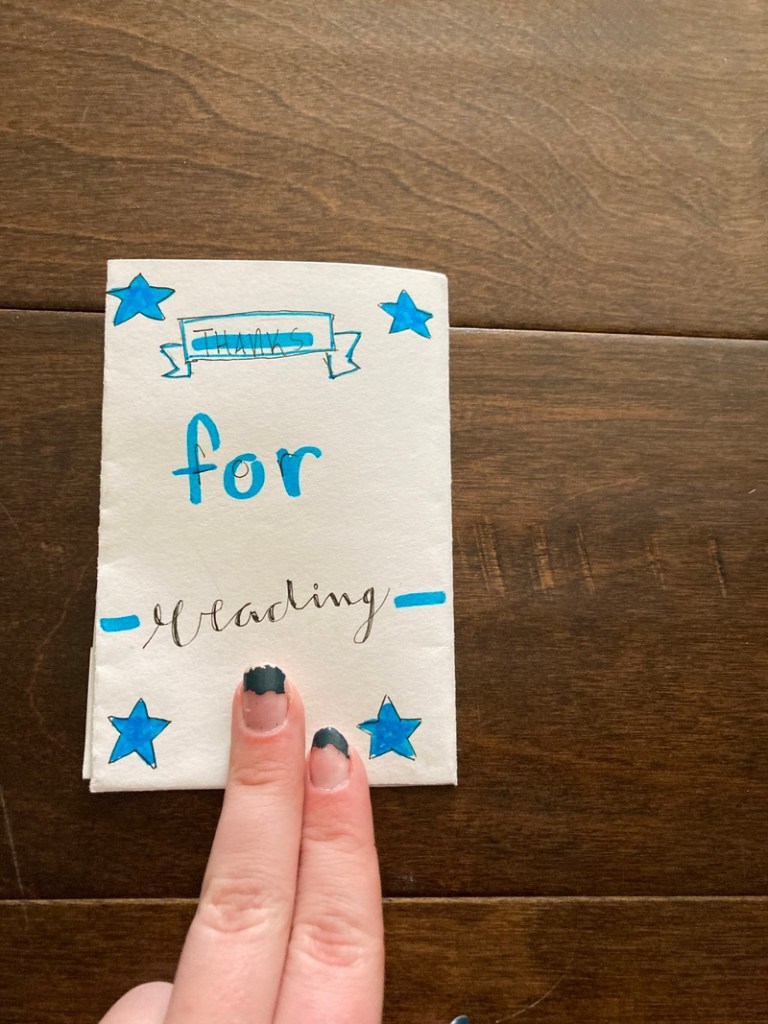 THANKS
for
reading